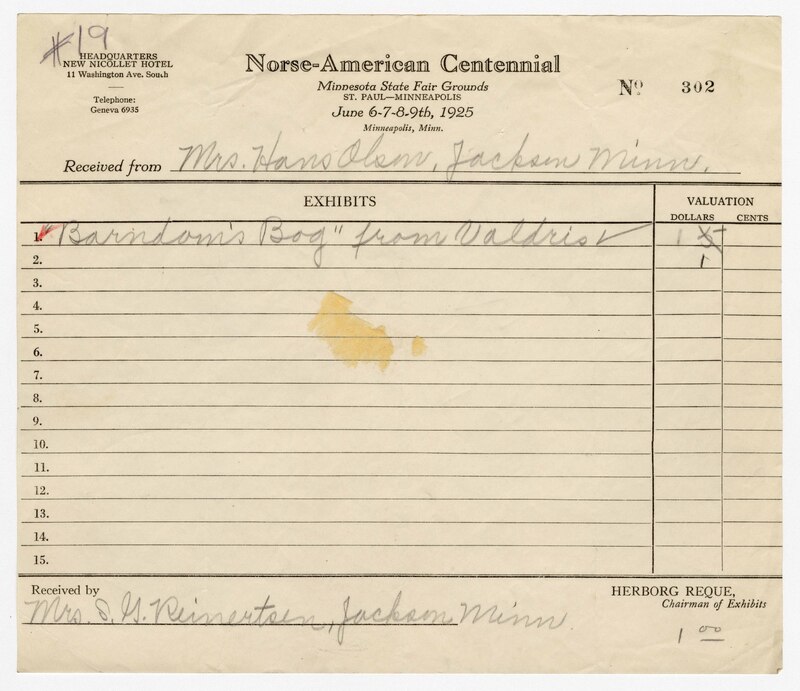 #19
HEADQUARTERS
NEW NICOLLET HOTEL
11 Washington Ave. South
Telephone:
Geneva 6935
Norse-American Centennial
Minnesota State Fair Grounds
ST. PAUL—MINNEAPOLIS
June 6-7-8-9th, 1925
Minneapolis, Minn.
Nº 302
Received from Mrs. Hans Olson, Jackson Minn.
EXHIBITS VALUATION
DOLLARS CENTS
1. "Barndom's Bog" from Valdris 1
2. 1
3.
4.
5.
6.
7.
8.
9.
10.
11.
12.
13.
14.
15.
Received by
Mrs. S. G. Reinertsen, Jackson Minn.
HERBORG REQUE,
Chairman of Exhibits
1 00